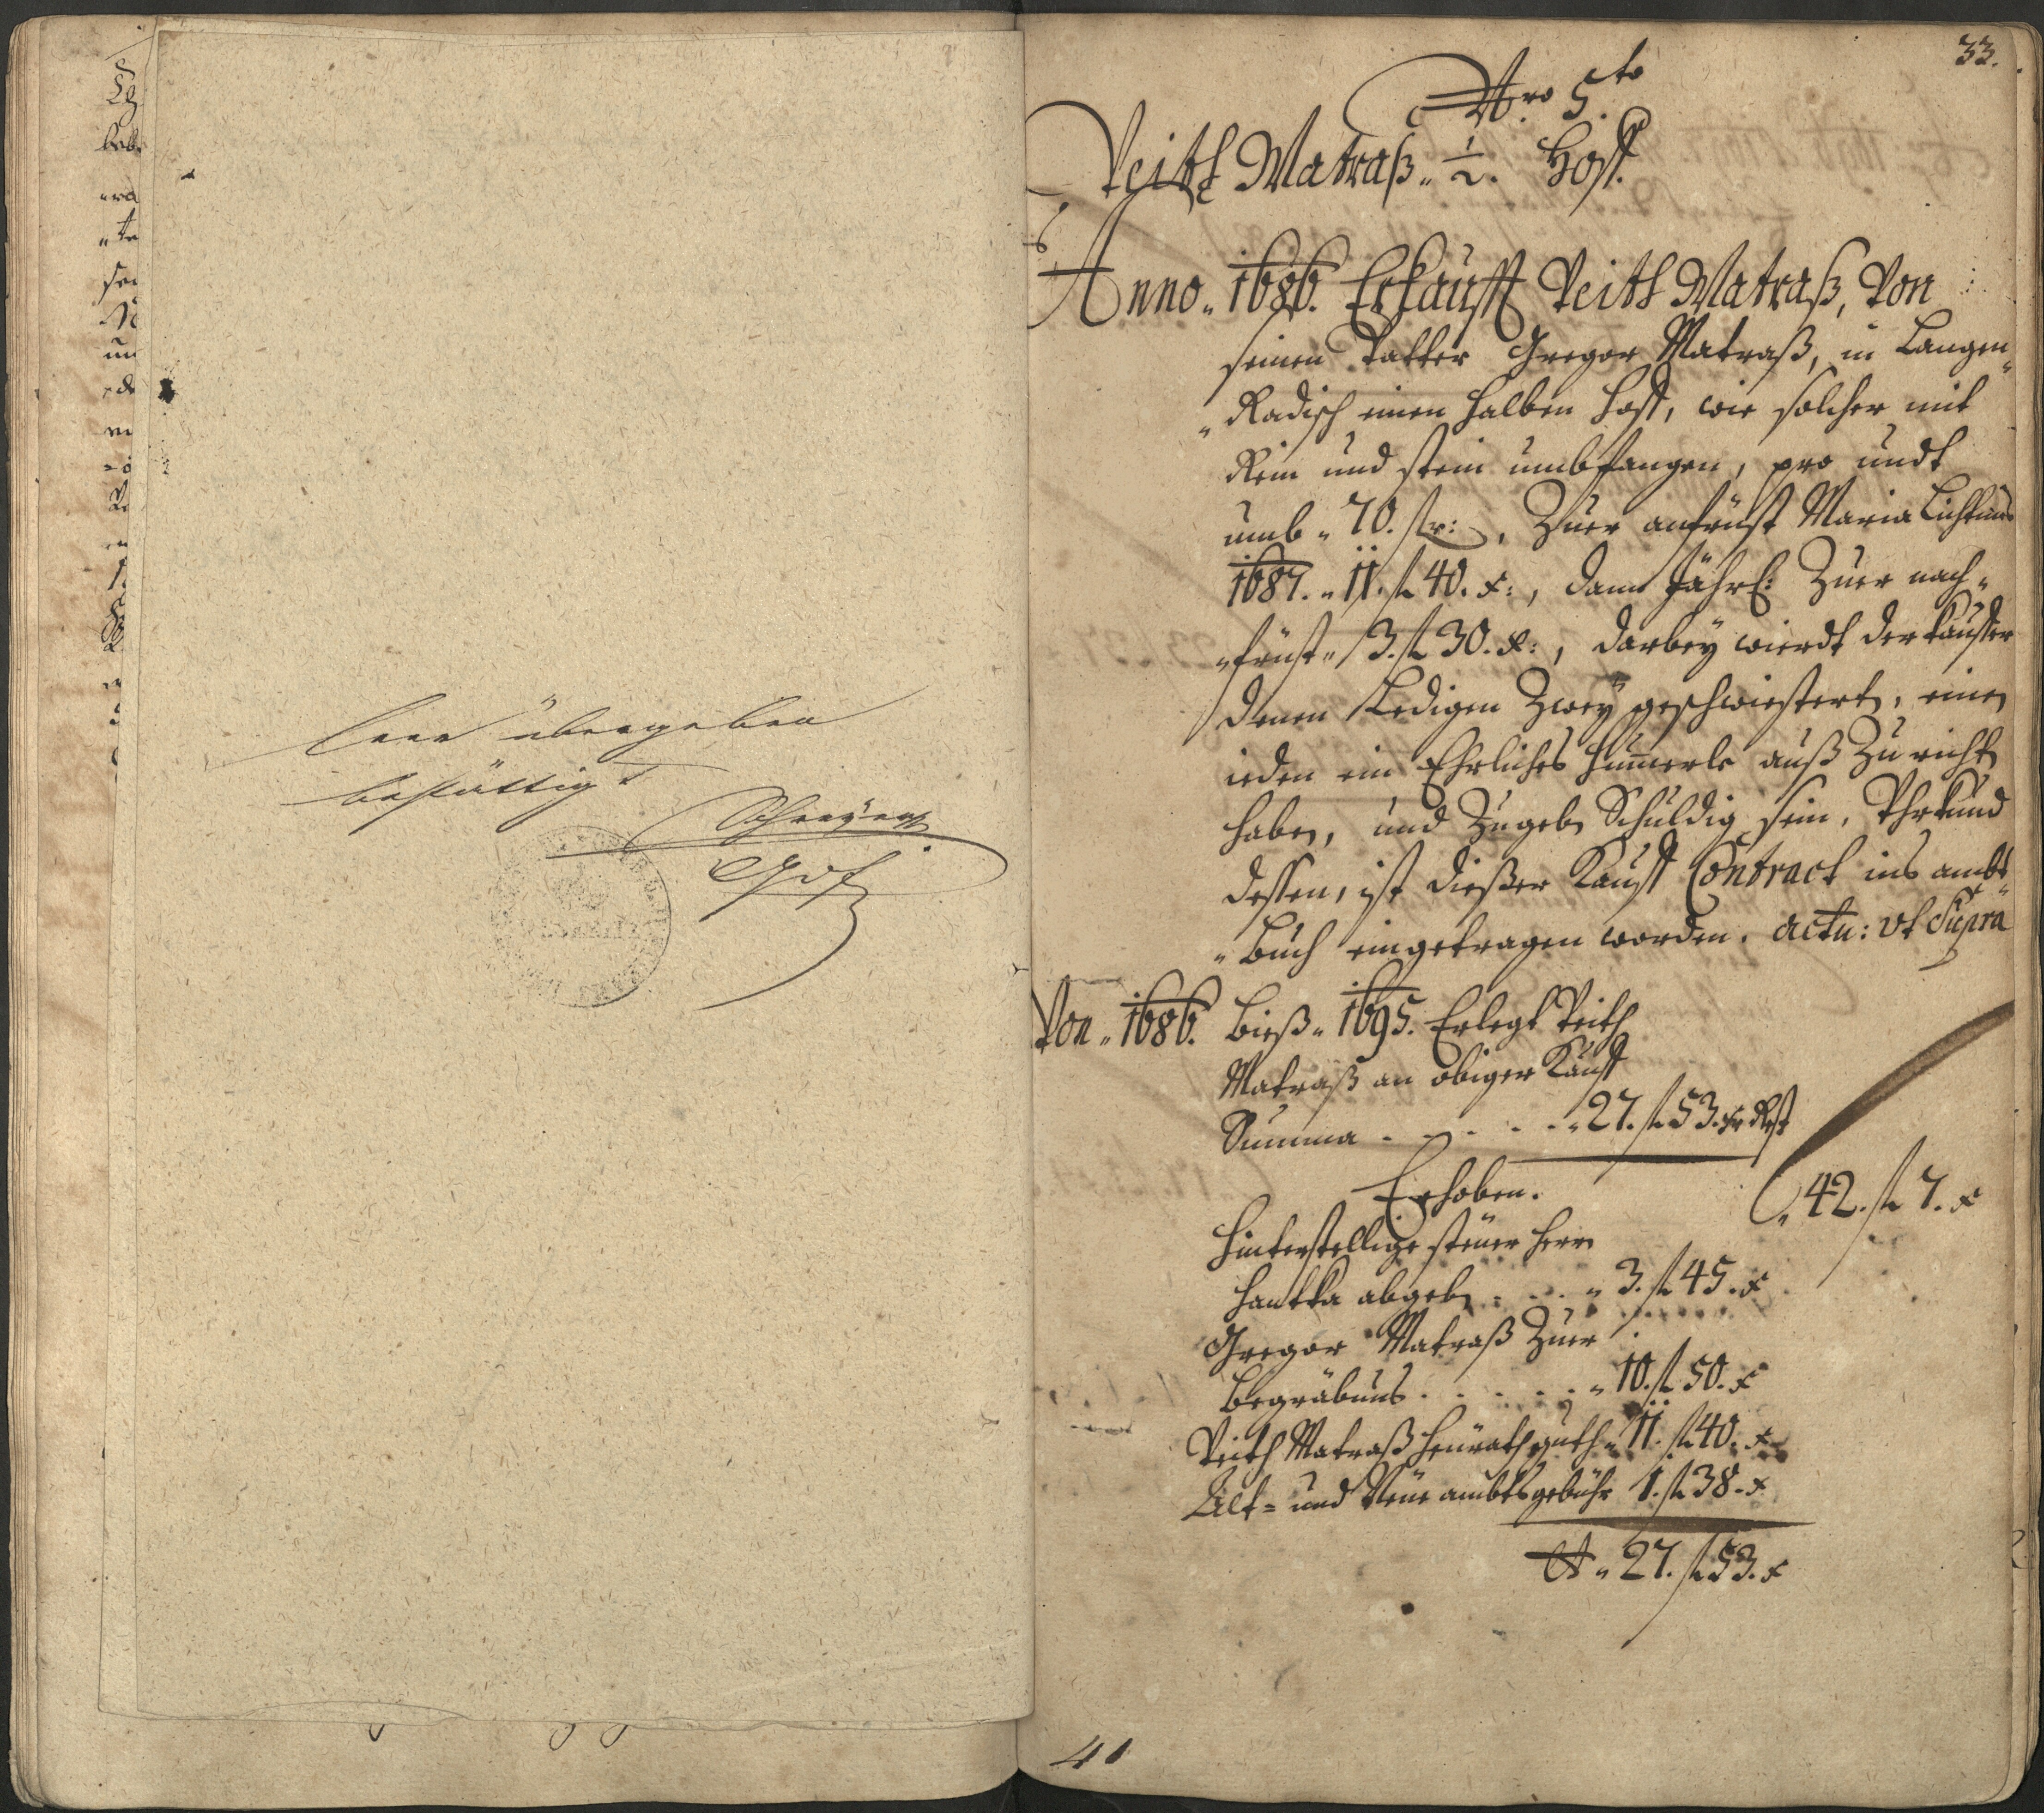 leer übergeben
bestättigt
33.
Nro 5to
Veith Matraß „ ½. Hoff.
Anno „ 1686. Erkaufft Veith Matraß, Von
seinen Vatter Gregor Matraß, in Langen„
„Radisch einen halben hoff, wie solcher mit
Rein und stein umbfangen, pro undt
umb „ 70. fl r:, Zuer anfrüst Maria Lichtmes
1687. „ 11. fl 40. x:, dann Jährl: Zuer nach„
„früst „ 3. fl 30. x:, darbey wierdt der kauffer
denen Ledigen Zwey geschwiestert, einen
ieden ein Ehrliches auß Zu richt
haben, und Zugeb Schuldig sein, Vhrkund
dessen, ist dießer Kauff Contract ins ambt„
„Buch eingetragen worden. actu: vt Supra
Von „ 1686. Bieß „ 1695. Erlegt Veith
Matraß an obiger Kauff
Summa . . . . . „ 27. fl 53. xr Rest
Erhoben.
„ 42. fl 7. x
Hinterstellige steüer Herrn
Hantka abgeb . . . „ 3. fl 45. x
Gregor Matraß Zuer
Begräbnus . . . . . „ 10. fl 50. x
Veith Matraß heürathguth „ 11. fl 40. x
Alt= und Neüe ambtsgebühr 1. fl 38. x
„ 27. fl 53. x
41